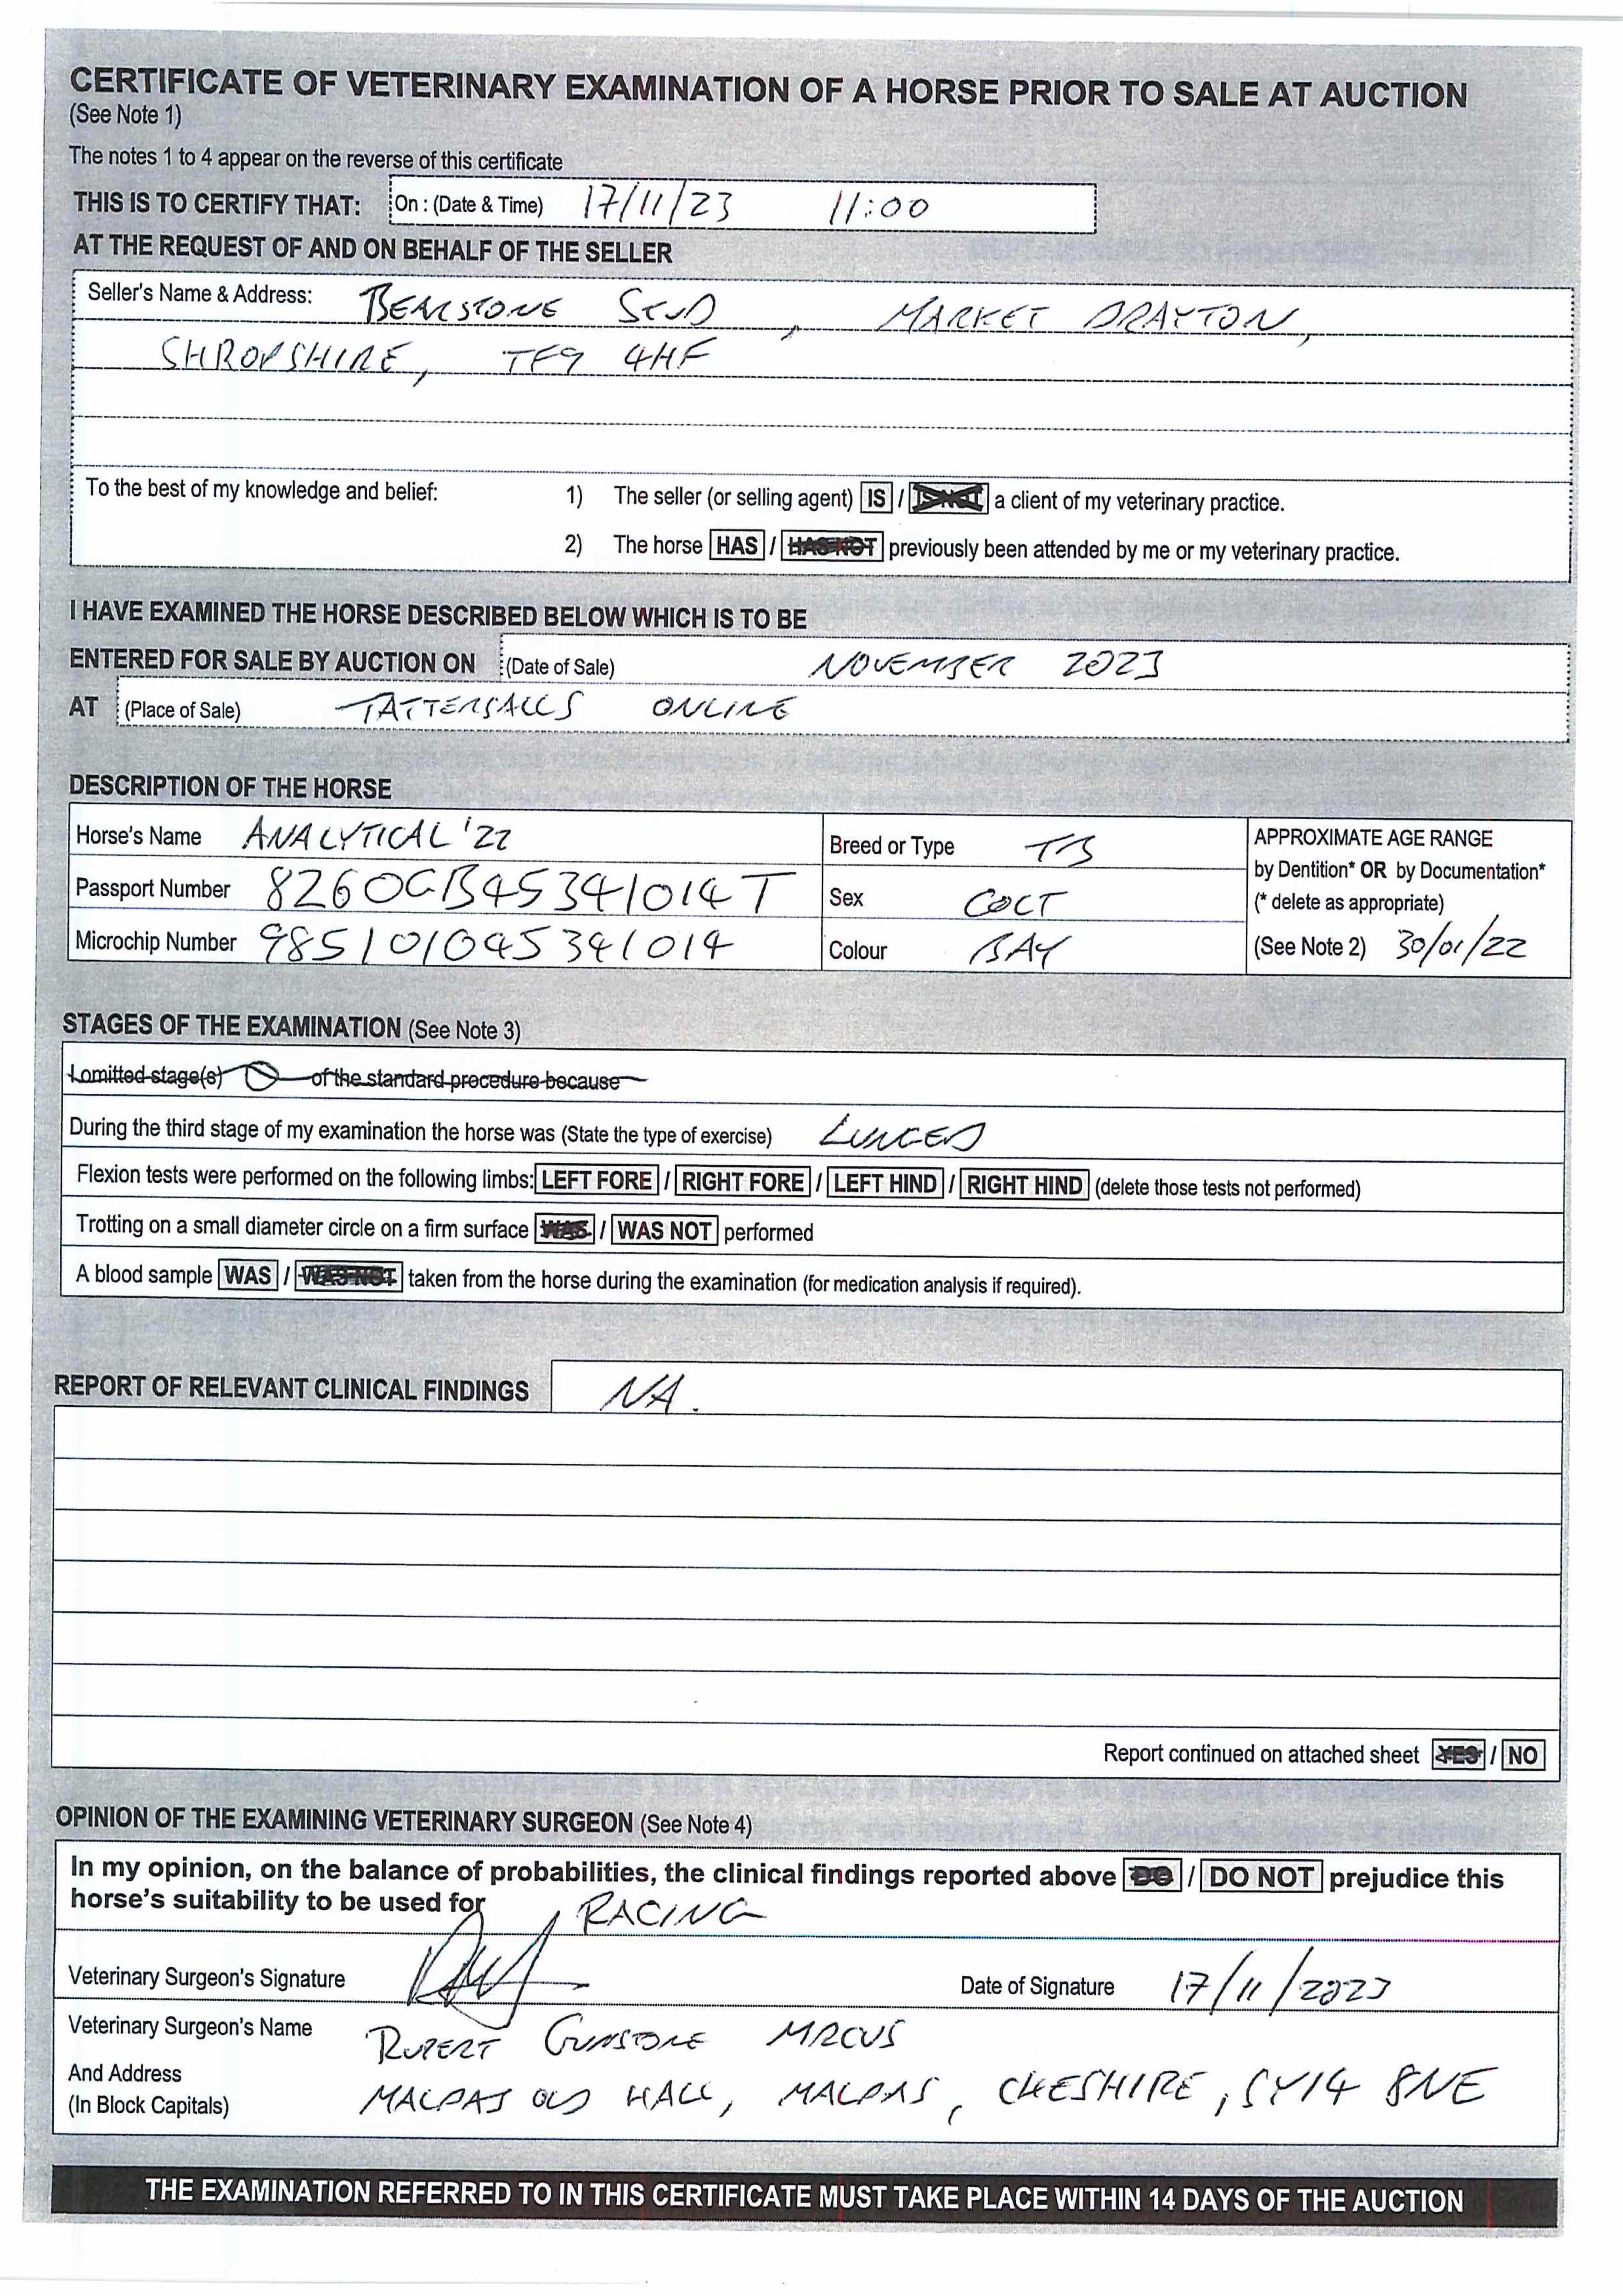 CERTIFICATE OF VETERINARY EXAMINATION OF A HORSE PRIOR TO SALE AT AUCTION
(See Note 1)
The notes 1 to 4 appear on the reverse of this certificate
THIS IS TO CERTIFY THAT: On : (Date & Time) 17/11/23 11:00
AT THE REQUEST OF AND ON BEHALF OF THE SELLER
Seller's Name & Address: BEARSTONE STUD, MARKET DRAYTON,
SHROPSHIRE, TF9 4HF
To the best of my knowledge and belief: 1) The seller (or selling agent) IS / IS NOT a client of my veterinary practice.
2) The horse HAS / HAS NOT previously been attended by me or my veterinary practice.
I HAVE EXAMINED THE HORSE DESCRIBED BELOW WHICH IS TO BE
ENTERED FOR SALE BY AUCTION ON (Date of Sale) NOVEMBER 2023
AT (Place of Sale) TATTERSALLS ONLINE
DESCRIPTION OF THE HORSE
Horse's Name ANALYTICAL '22 Breed or Type TB APPROXIMATE AGE RANGE
by Dentition* OR by Documentation*
Passport Number 8260GB45341014T Sex COLT (* delete as appropriate)
Microchip Number 985101045341014 Colour BAY (See Note 2) 30/01/22
STAGES OF THE EXAMINATION (See Note 3)
I omitted stage(s) of the standard procedure because
During the third stage of my examination the horse was (State the type of exercise) LUNGED
Flexion tests were performed on the following limbs: LEFT FORE / RIGHT FORE / LEFT HIND / RIGHT HIND (delete those tests not performed)
Trotting on a small diameter circle on a firm surface WAS / WAS NOT performed
A blood sample WAS / WAS NOT taken from the horse during the examination (for medication analysis if required).
REPORT OF RELEVANT CLINICAL FINDINGS NA.
Report continued on attached sheet YES / NO
OPINION OF THE EXAMINING VETERINARY SURGEON (See Note 4)
In my opinion, on the balance of probabilities, the clinical findings reported above DO / DO NOT prejudice this
horse's suitability to be used for RACING
Veterinary Surgeon's Signature Date of Signature 17/11/2023
Veterinary Surgeon's Name RUPERT MRCVS
And Address
(In Block Capitals) MALPAS OLD HALL, MALPAS, CHESHIRE, SY14 8NE
THE EXAMINATION REFERRED TO IN THIS CERTIFICATE MUST TAKE PLACE WITHIN 14 DAYS OF THE AUCTION